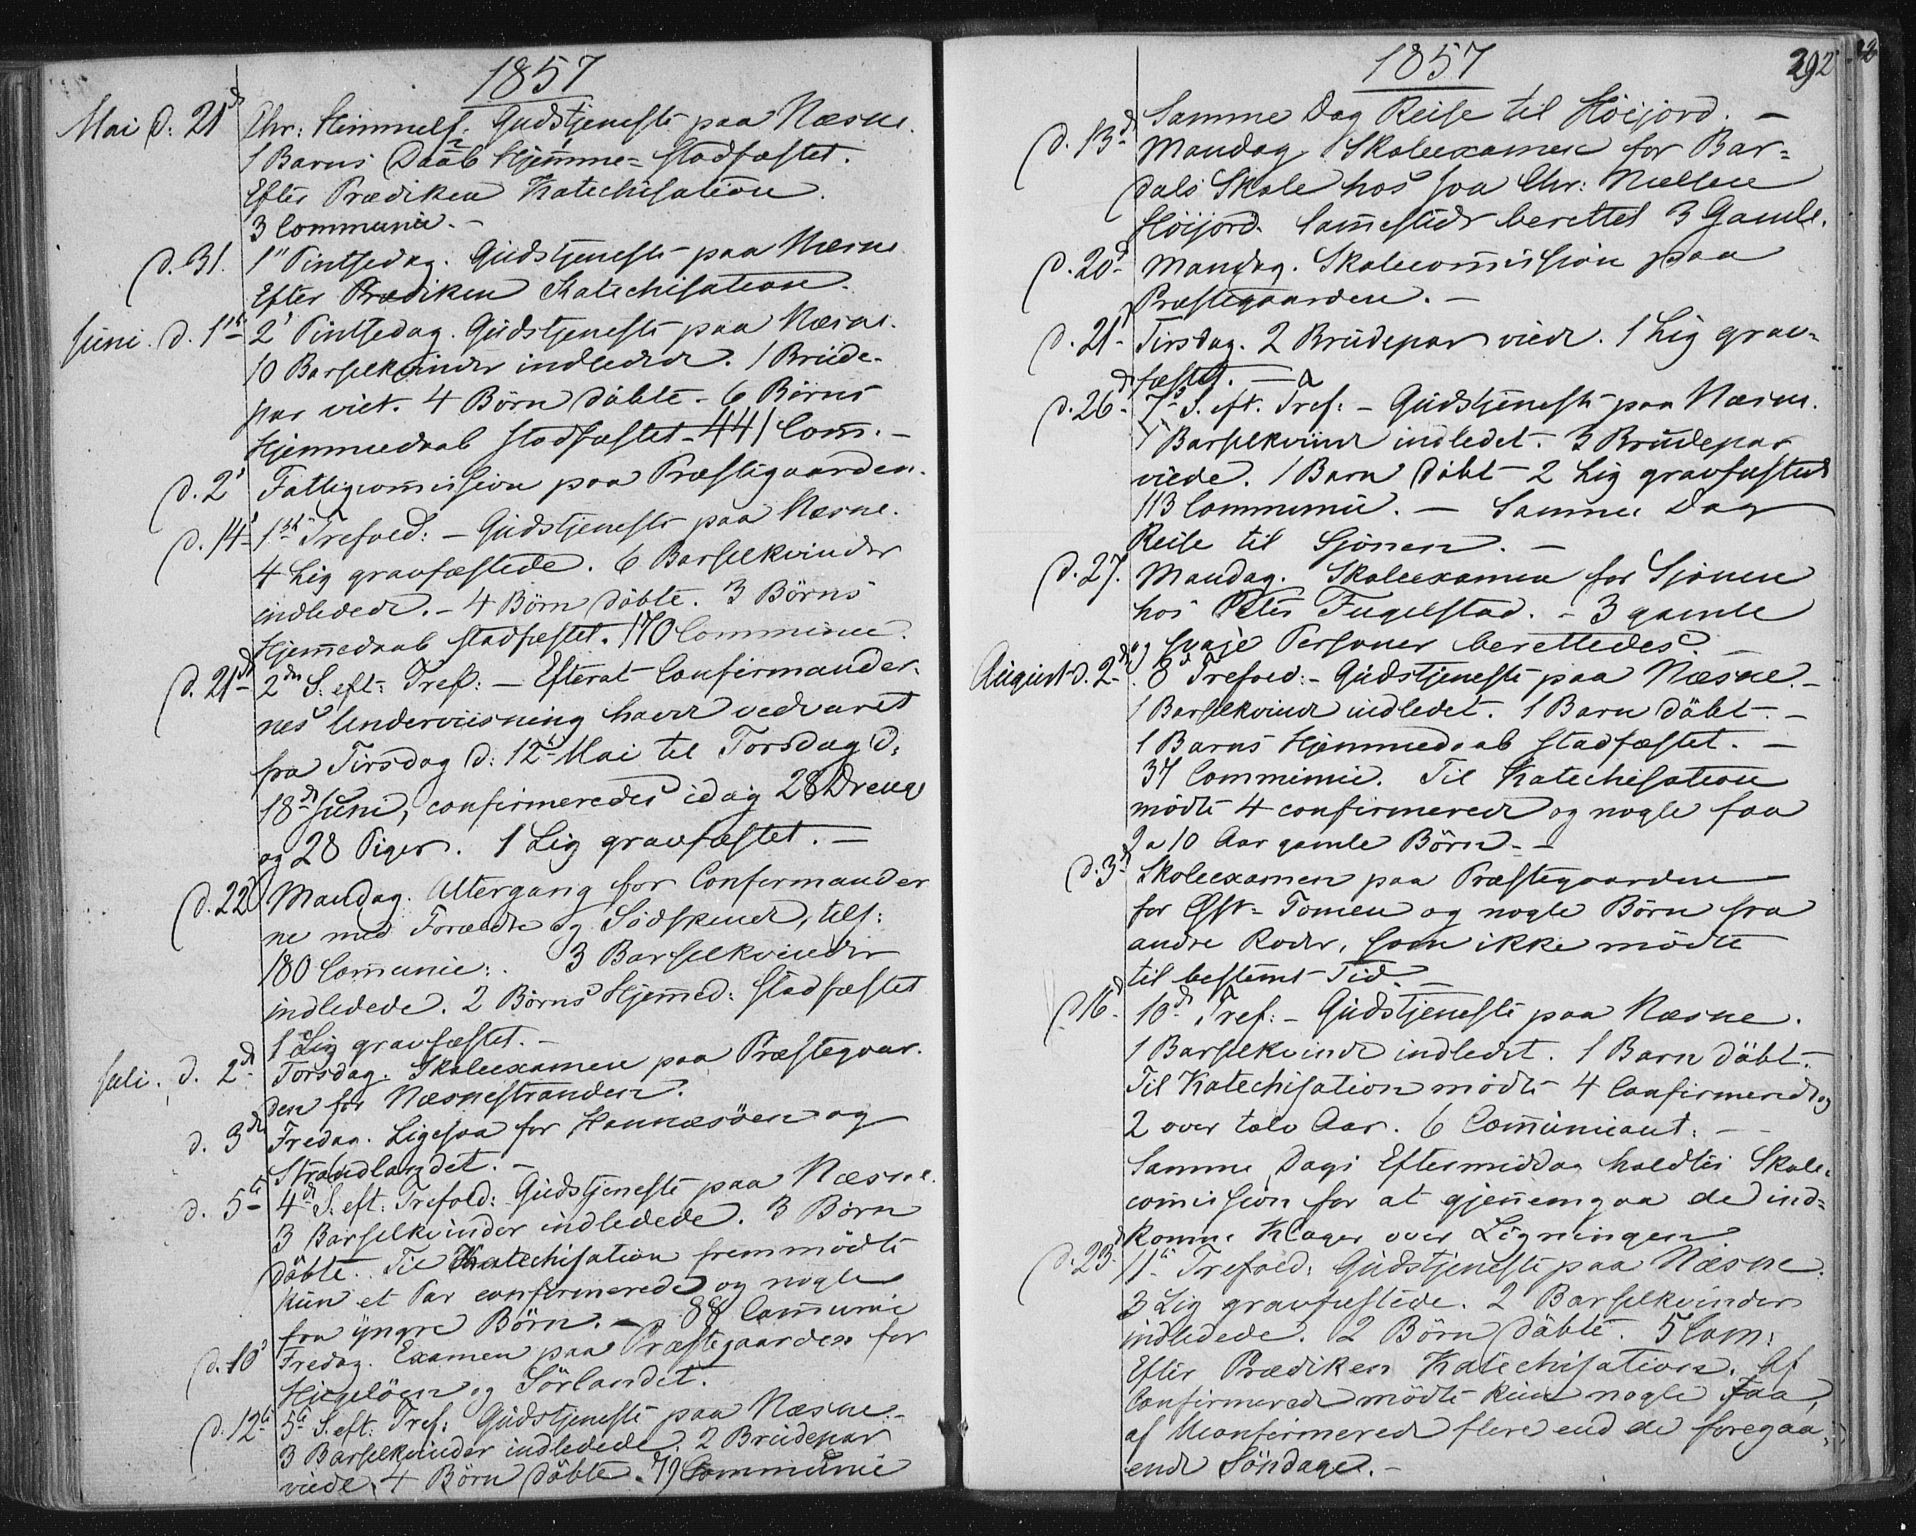 1857
Mai d: 21d Chr: Himmelf. Gudstjeneste paa Næsne.
1 Barns Daab Hjemme= stadfæstet.
Efter Prædiken Katechisation.
3 Communic. -
d. 31. 1" Pintsedag. Gudstjeneste paa Næsne
Efter Prædiken Katechisation.
Juni. d. 1st 2' Pintsedag. Gudstjeneste paa Næsne.
10 Barselkvinder indledede. 1 Brude-
par viet. 4 Börn döbte - 6 Börns
Hjemmedaab stadfæstet - 441 Com. -
d. 2' Fattigcomission paa Præstegaarden.
d. 14' 1ste Trefold: - Gudstjeneste paa Næsne.
4 Lig gravfæstede. 6 Barselkvinder
indledede. - 4 Börn döbte. 3 Börns
Hjemmedaab stadfæstet. 170 Communic.
d. 21d 2den S: eft: Tref: - Efterat Confirmander-
nes Underviisning havde vedvaret
fra Tirsdag d: 12t Mai til Torsdag d:
18d Juni, confirmeredes idag 28 Drenge
og 28 Piger. 1 Lig gravfæstet. -
d. 22d Mandag. Altergang for Confirmander
ne med Forældre og Södskende, tils:
180 Comunic: . 3 Barselkvinder
indledede. 2 Börns Hjemmed: stadfæstet
1 Lig gravfæstet. -
Juli. d. 2d Torsdag. Skoleexamen paa Præstegaar-
den for Næsnestranden.
d. 3d Fredag. Ligesaa for Hannæsöen og
Strandlandet. -
d. 5t 4d S: eft: Trefold: Gudstjeneste paa Næsne.
3 Barselkvinder indledede. 3 Börn
döbte. Til Katechisation fremmödte
kun et Par confirmerede og nogle
faa yngre Börn. - 88 Communic
d. 10' Fredag. Examen paa Præstegaarden for
Hugelöen og Sörlandet.
d. 12t 5t S. eft: Tref: Gudstjeneste paa Næsne. -
3 Barselkvinder indledede. 2 Brudepar
viede. 4 Börn döbte. 79 Communic
1857
292
Samme Dag Reise til Höijord. -
d. 13d Mandag. Skoleexamen for Bar=
dals Skole hos Chr: Nielsen
Höijord. Samestedes berettet 3 Gamle.
d. 20d Mandag. Skolecomission paa
Præstegaarden. -
d. 21d Tirsdag. 2 Brudepar viede. 1 Lig grav-
fæstet. -
d. 26d 7d S. eft. Tref: - Gudstjeneste paa Næsne.
1 Barselkvinde indledet - 3 Brudepar
viede. 1 Barn döbt - 2 Lig gravfæstede
113 Communic. - Samme Dag
Reise til Sjonen. -
d. 27. Mandag. Skoleexamen for Sjonen
hos Peter Fugelstad. - 3 gamle
og svage Personer berettedes. -
August d. 2d 8d Trefold: - Gudstjeneste paa Næsne. -
1 Barselkvinde indledet. 1 Barn döbt. -
1 Barns Hjemmedaab stadfæstet. -
37 Communic. Til Katechisation
mödte 4 confirmerede og nogle faa
9 a 10 Aar gamle Börn. -
d. 3d Skoleexamen paa Præstegaarden
for Öst= Tomen og nogle Börn fra
andre Roder, som ikke mödte
til bestemt Tid. -
d. 16d 10d Tref: - Gudstjeneste paa Næsne.
1 Barselkvinde indledet. 1 Barn döbt -
Til Katechisation mödte 4 Confirmerede og
2 over tolv Aar. 6 Comunicant: -
Samme Dags Eftermiddag holdtes Skole-
comission for at gjenemgaa de ind=
komne Klager over Ligningen
d. 23d 11t Trefold: Gudstjeneste paa Næsne.
3 Lig gravfæstede. 2 Barselkvinder
indledede. 2 Börn döbte. 5 Com:
Efter Prædiken Katechisation. Af
Confirmerede mödte kun nogle Faa,
af Uconfirmerede flere end de foregaa-
ende Söndage. -